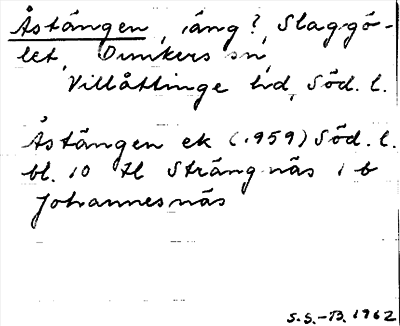 Åstängen, äng?, Slaggö-
let, Dunkers sn,
Villåttinge hd, Söd. l.
Åstängen ek (1959) Söd. l.
bl. 10 Strängnäs i b
Johannesnäs
S.S.-B. 1962